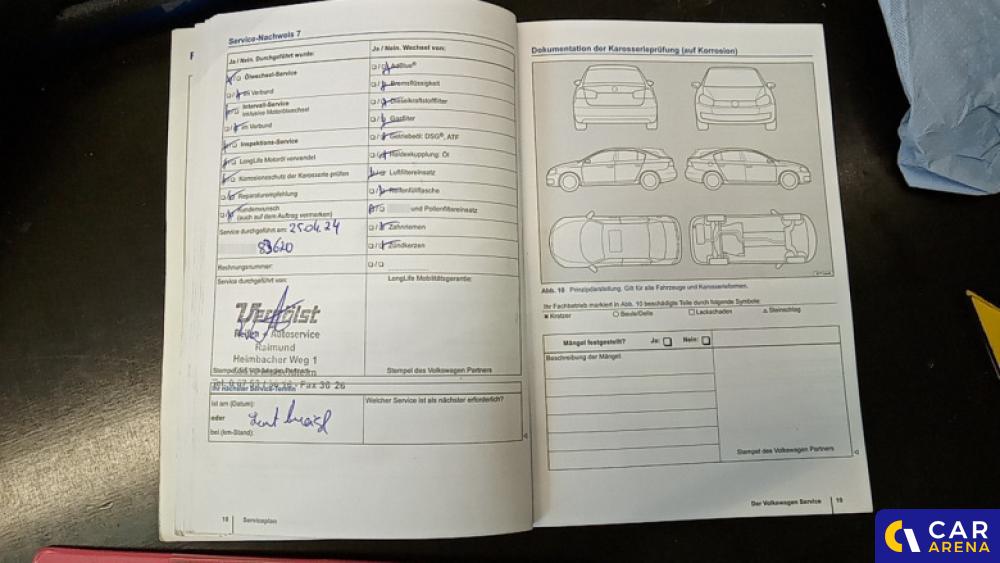 Service-Nachweis 7
Ja / Nein. Durchgeführt wurde:
Ölwechsel-Service
im Verbund
Intervall-Service
inklusive Motorölwechsel
im Verbund
Inspektions-Service
LongLife Motoröl verwendet
Korrosionsschutz der Karosserie prüfen
Reparaturempfehlung
Kundenwunsch
(auch auf dem Auftrag vermerken)
Service durchgeführt am: 25.04.24
83620
Rechnungsnummer:
Service durchgeführt von:
Reifen + Autoservice
Raimund
Heimbacher Weg 1
Stempel des Volkswagen Partners
Fax 36 26
Ihr nächster Service-Termin
Ist am (Datum):
oder
bei (km-Stand):
Ja / Nein. Wechsel von:
AdBlue®
Bremsflüssigkeit
Dieselkraftstofffilter
Gasfilter
Getriebeöl: DSG®, ATF
Haldexkupplung: Öl
Luftfiltereinsatz
Reifenfüllflasche
und Pollenfiltereinsatz
Zahnriemen
Zündkerzen
LongLife Mobilitätsgarantie:
Stempel des Volkswagen Partners
Welcher Service ist als nächster erforderlich?
18 Serviceplan
Dokumentation der Karosserieprüfung (auf Korrosion)
Abb. 10 Prinzipdarstellung. Gilt für alle Fahrzeuge und Karosserieformen.
Ihr Fachbetrieb markiert in Abb. 10 beschädigte Teile durch folgende Symbole:
Kratzer Beule/Delle Lackschaden Steinschlag
Mängel festgestellt? Ja: Nein:
Beschreibung der Mängel:
Stempel des Volkswagen Partners
Der Volkswagen Service 19
CAR
ARENA